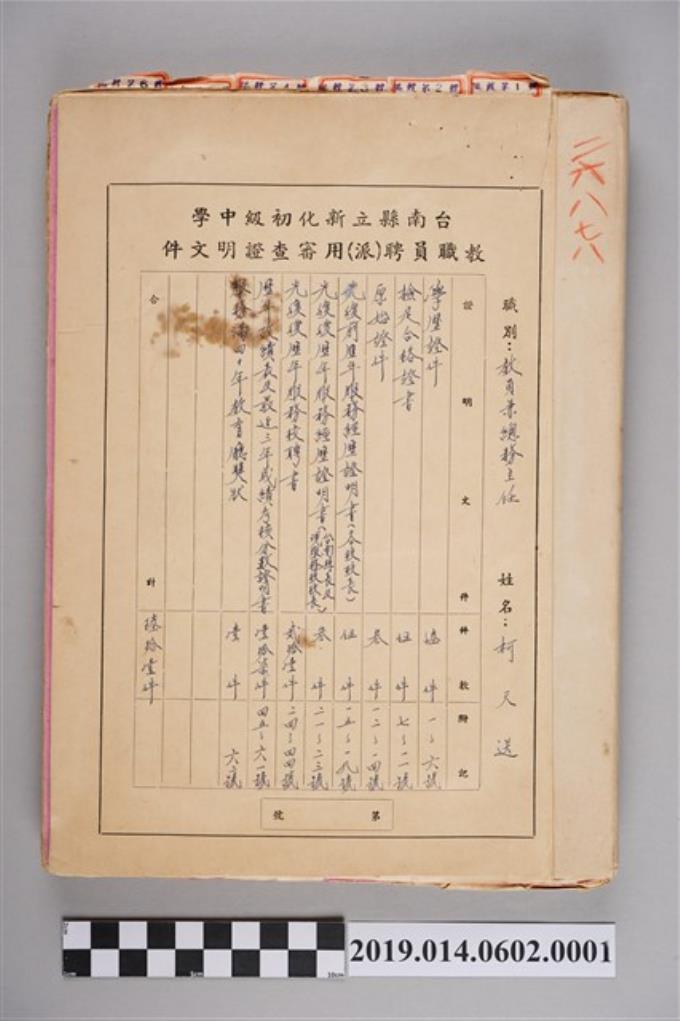 二六八七八
台南縣立新化初級中學
教職員聘(派)用審查證明文件
職別：教員兼總務主任　姓名：柯天送
證明文件　件數　附記
學歷證件　陆件　一～六號
檢定合格證書　伍件　七～一一號
原始證件　叁件　一二～一四號
光復前歷年服務經歷證明書(各校校長)　伍件　一五～一九號
光復後歷年服務經歷證明書(台南縣長及現服務校校長)　叁件　二一～二三號
光復後歷年服務校聘書　貳拾壹件　二四～四四號
歷年成績表及最近三年成績考核分數證明書　壹拾柒件　四五～六一號
服務滿四十年教育廳獎狀　壹件　六二號
合計　陸拾壹件
第　號
2019.014.0602.0001